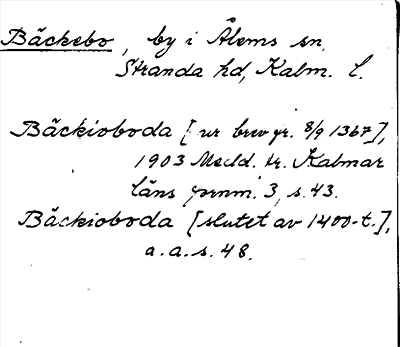 Bäckebo, by i Ålems sn,
Stranda hd, Kalm. l.
Bäckioboda [ur brev fr. 8/9 1367],
1903 Medd. fr. Kalmar
läns fornm. 3, s. 43.
Bäckioboda [slutet av 1400-t.],
a.a. s. 48.